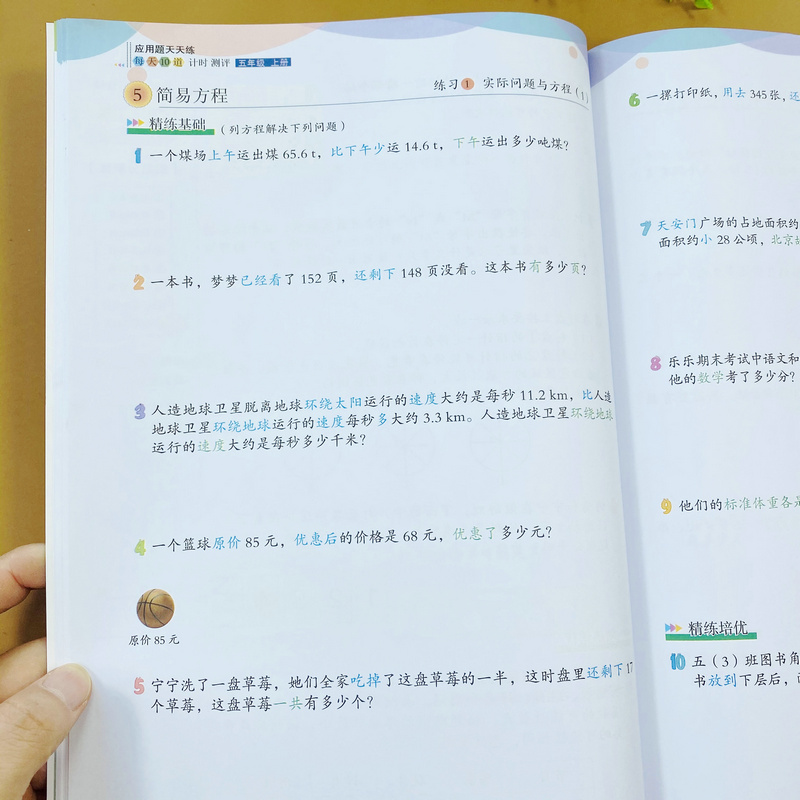 应用题天天练
每天10道 计时 测评 五年级 上册
5 简易方程
练习1 实际问题与方程（1）
精练基础 （列方程解决下列问题）
1 一个煤场上午运出煤 65.6 t，比下午少运 14.6 t，下午运出多少吨煤？
2 一本书，梦梦已经看了 152 页，还剩下 148 页没看。这本书有多少页？
3 人造地球卫星脱离地球环绕太阳运行的速度大约是每秒 11.2 km，比人造
地球卫星环绕地球运行的速度每秒多大约 3.3 km。人造地球卫星环绕地球
运行的速度大约是每秒多少千米？
4 一个篮球原价 85 元，优惠后的价格是 68 元，优惠了多少元？
原价 85 元
5 宁宁洗了一盘草莓，她们全家吃掉了这盘草莓的一半，这时盘里还剩下 17
个草莓，这盘草莓一共有多少个？
6 一摞打印纸，用去 345 张，还
7 天安门广场的占地面积约
面积约小 28 公顷，北京故
8 乐乐期末考试中语文和
他的数学考了多少分？
9 他们的标准体重各是
精练培优
10 五（3）班图书角
书放到下层后，